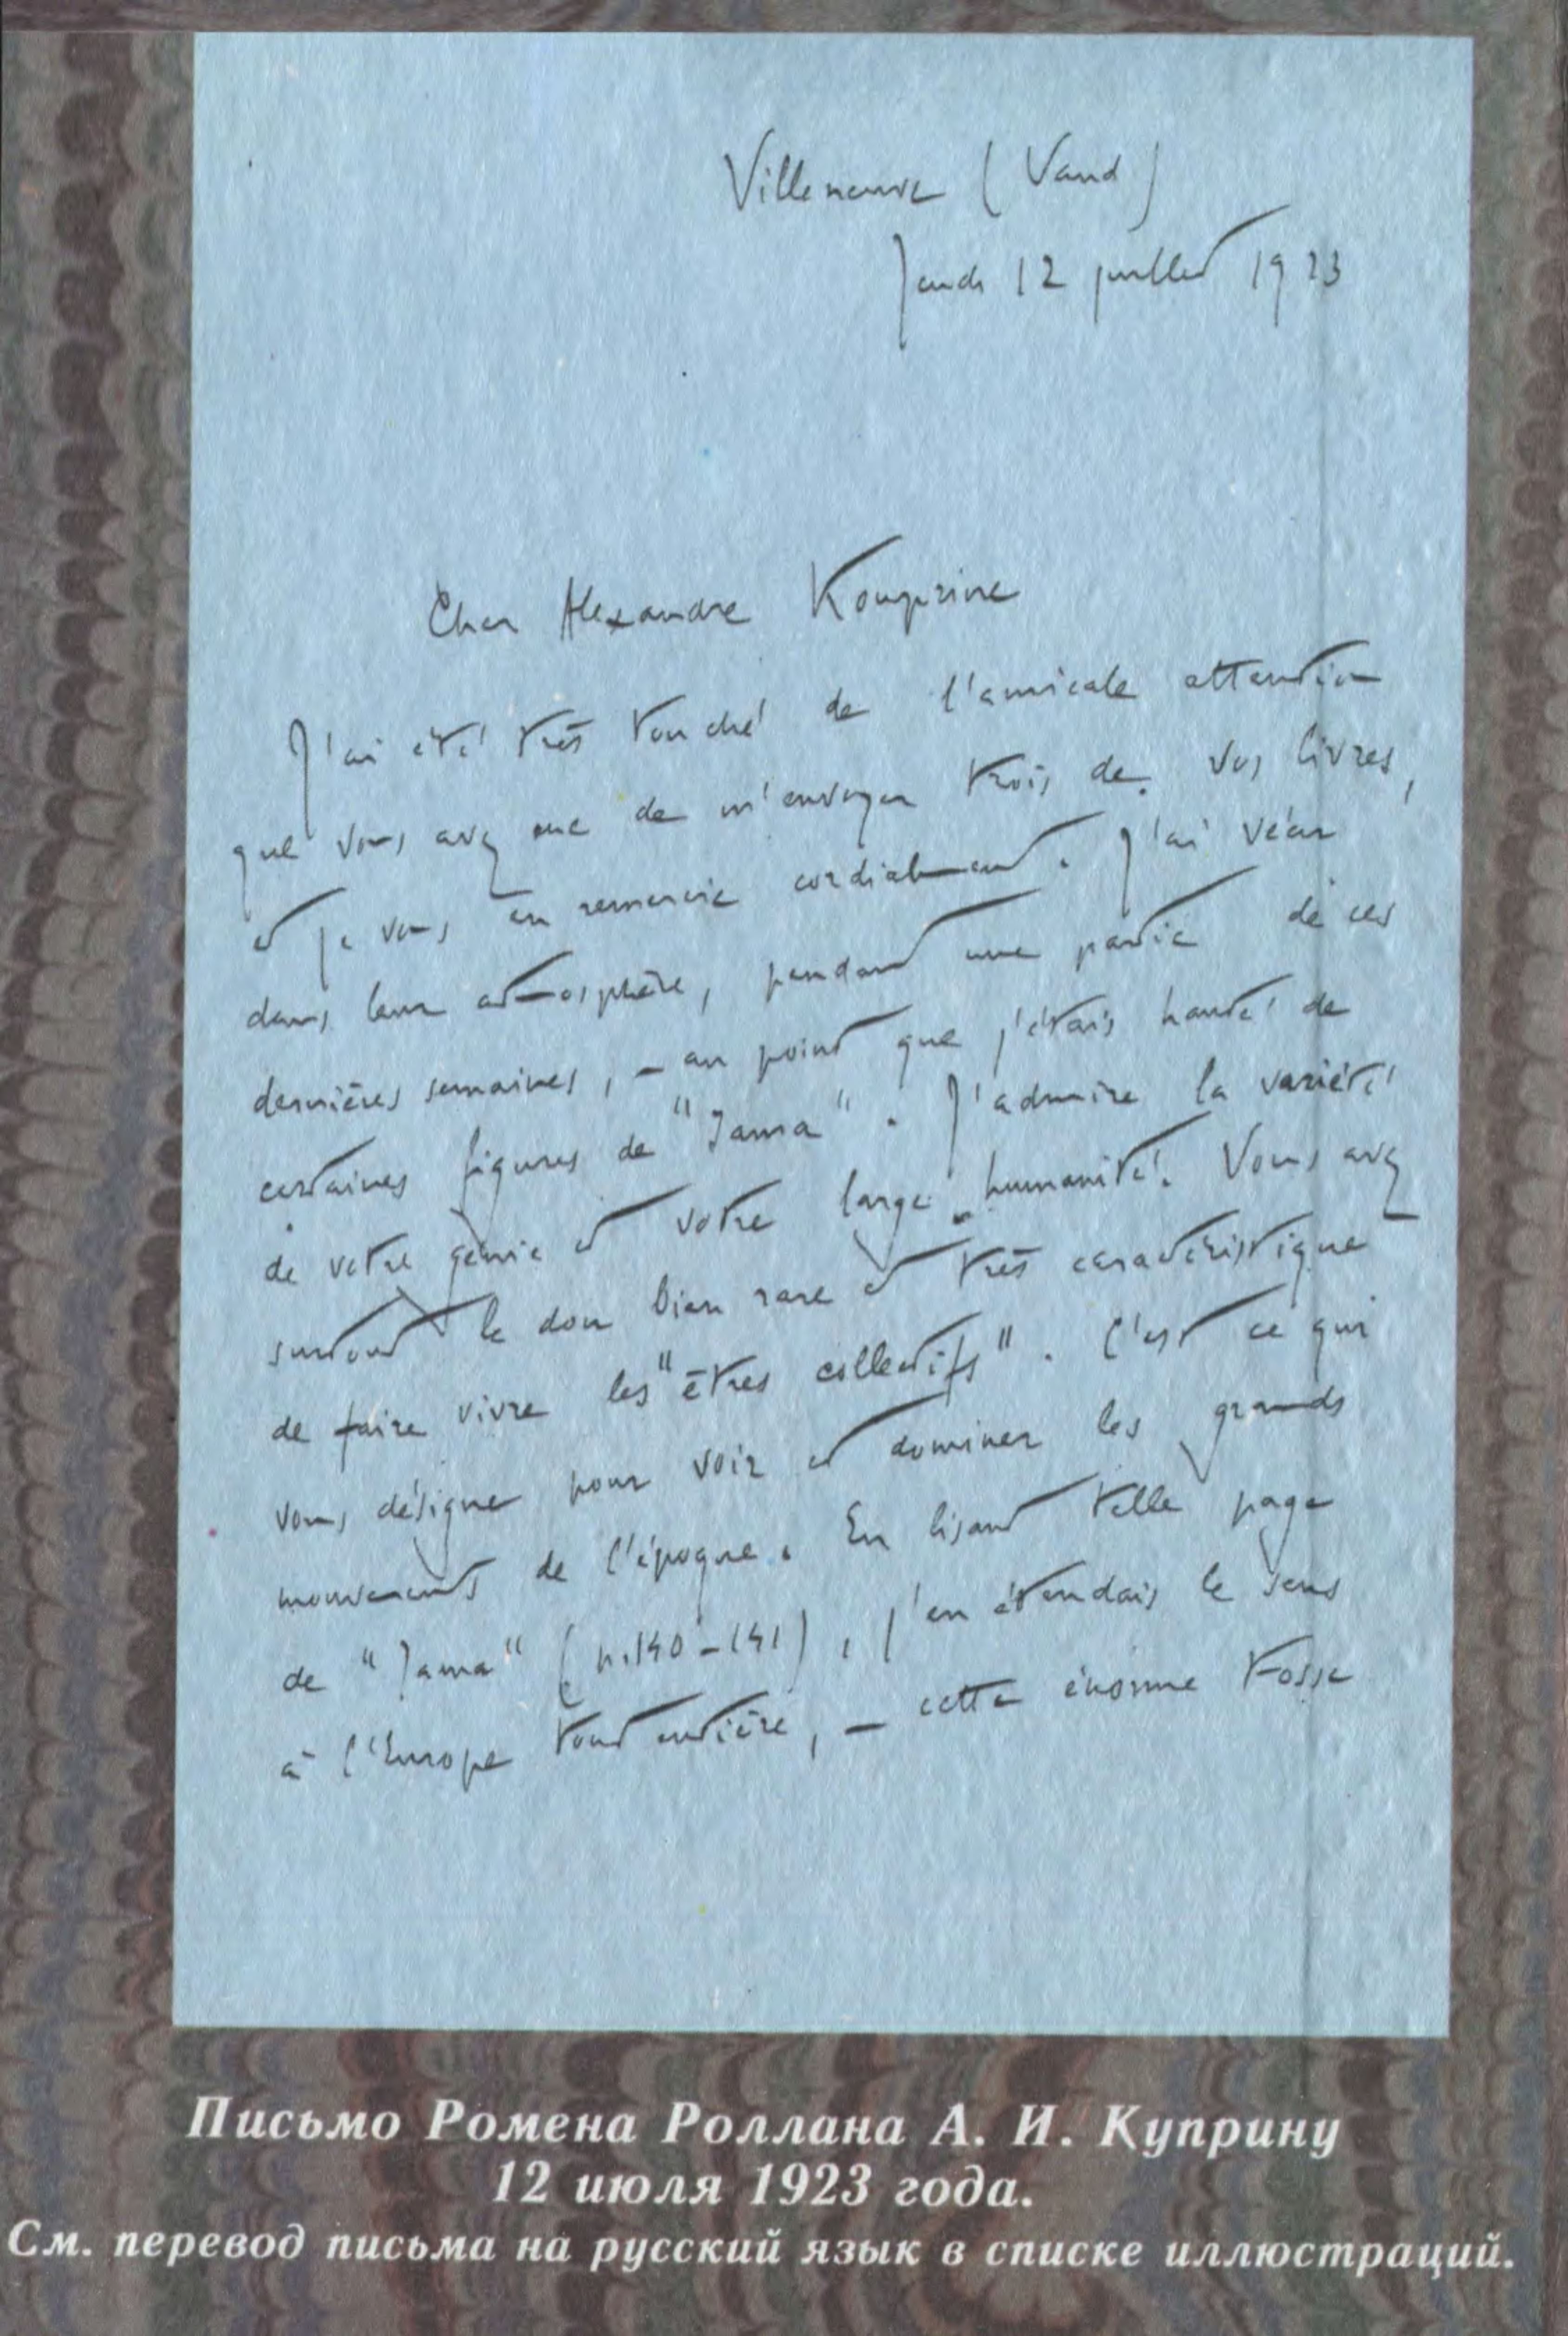 Villeneuve (Vaud)
Jeudi 12 juillet 1923
Cher Alexandre Kouprine
J'ai été très touché de l'amicale attention
que vous avez eue de m'envoyer trois de vos livres,
et je vous en remercie cordialement. J'ai vécu
dans leur atmosphère, pendant une partie de ces
dernières semaines, – au point que j'étais hanté de
certaines figures de "Jama". J'admire la variété
de votre génie et votre large humanité. Vous avez
surtout le don bien rare et très caractéristique
de faire vivre les "êtres collectifs". C'est ce qui
vous désigne pour voir et dominer les grands
mouvements de l'époque. En lisant telle page
de "Jama" (p.140–141), j'en étendais le sens
à l'Europe tout entière, – cette énorme Fosse
Письмо Ромена Роллана А. И. Куприну
12 июля 1923 года.
См. перевод письма на русский язык в списке иллюстраций.